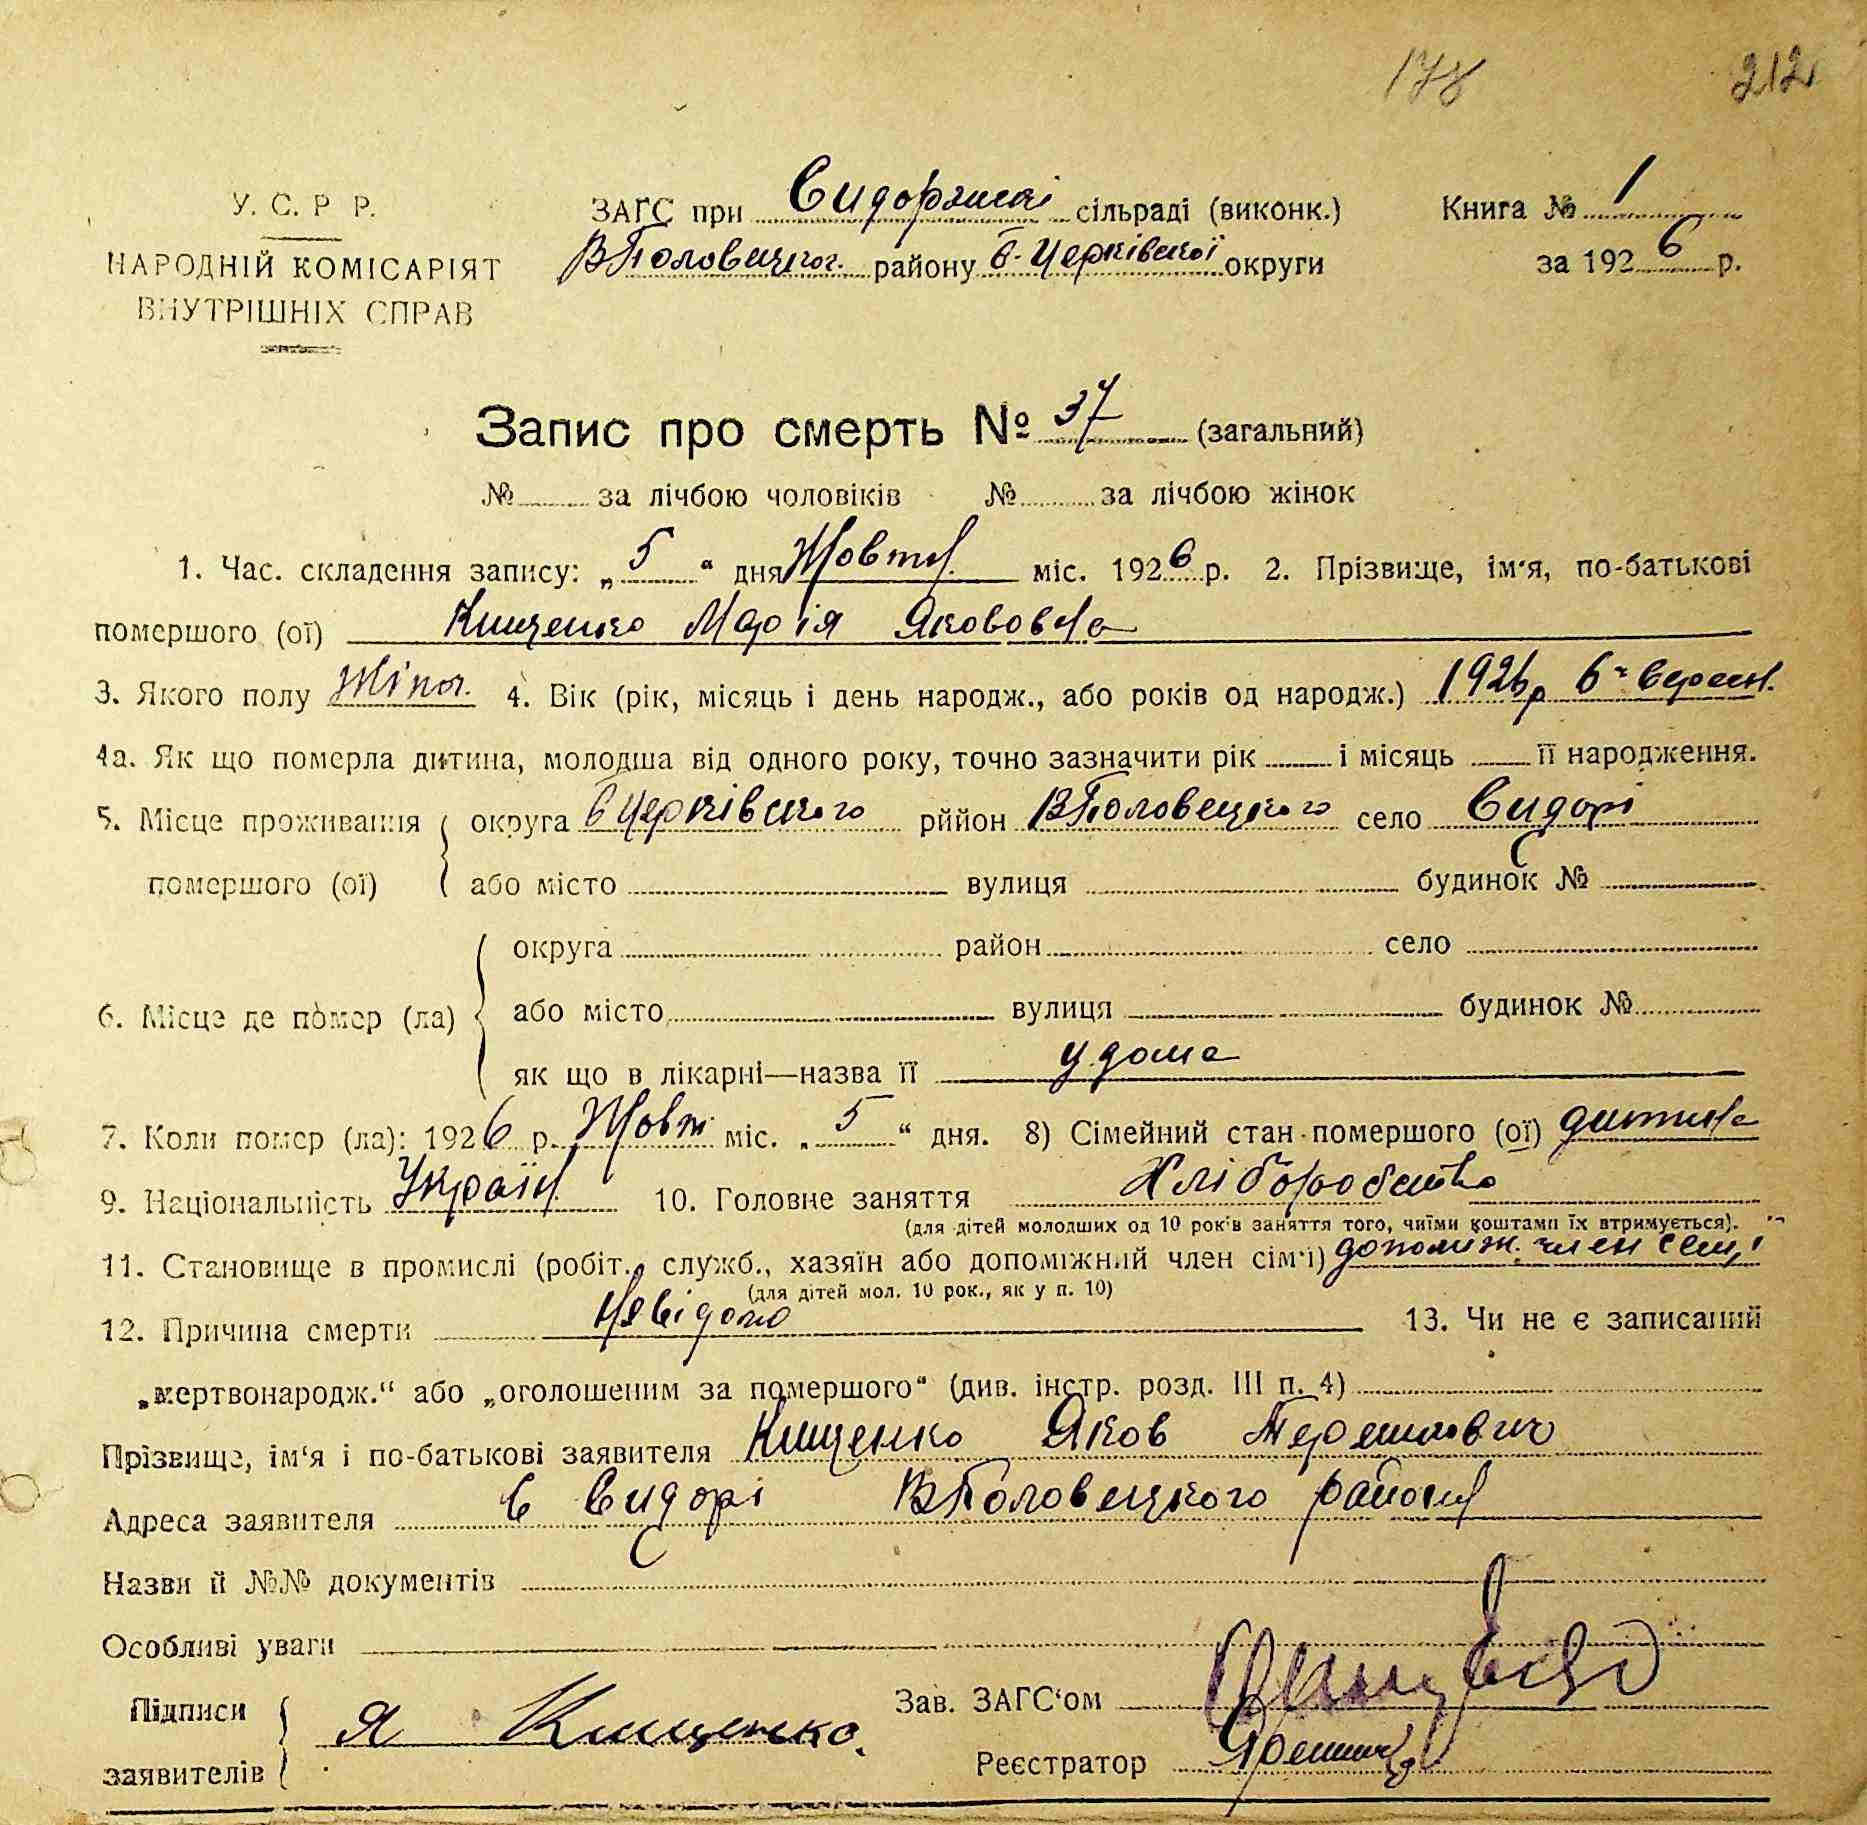 178 212
У. С. Р Р.
НАРОДНІЙ КОМІСАРІЯТ
ВНУТРІШНІХ СПРАВ
ЗАГС при Сидорянскі сільраді (виконк.)
ВПоловецког. району Б. Церківської округи
Книга № 1
за 1926 р.
Запис про смерть № 37 (загальний)
№ за лічбою чоловіків № за лічбою жінок
1. Час. складення запису: „5“ дня Жовтн. міс. 1926 р. 2. Прізвище, ім‘я, по-батькові
помершого (ої) Кищенко Марія Якововна
3. Якого полу Жіноч. 4. Вік (рік, місяць і день народж., або років од народж.) 1926р 6 Вересн.
4а. Як що померла дитина, молодша від одного року, точно зазначити рік і місяць її народження.
5. Місце проживання помершого (ої) округа БЦерківського рййон ВПоловецького село Сидорі
або місто вулиця будинок №
6. Місце де помер (ла) округа район село
або місто вулиця будинок №
як що в лікарні—назва її у дома
7. Коли помер (ла): 1926 р. Жовт міс. „5“ дня. 8) Сімейний стан помершого (ої) дитина
9. Національність Україн. 10. Головне заняття Хліборобство
(для дітей молодших од 10 років заняття того, чиїми коштами їх втримується).
11. Становище в промислі (робіт., служб., хазяїн або допоміжний член сім‘ї) допоміж. член семї
(для дітей мол. 10 рок., як у п. 10)
12. Причина смерти Невідомо 13. Чи не є записаний
„мертвонародж.“ або „оголошеним за помершого“ (див. інстр. розд. III п. 4)
Прізвище, ім‘я і по-батькові заявителя Кищенко Яков Терешкович
Адреса заявителя С Сидорі ВПоловецкого района
Назви й №№ документів
Особливі уваги
Підписи
заявителів Я Кищенко.
Зав. ЗАГС‘ом
Реєстратор